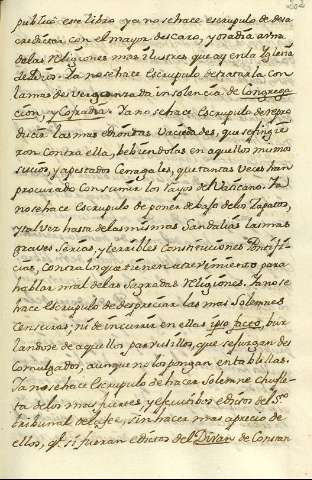 202
publicó este libro ya no se hace escrupulo de desa
creditar con el mayor descaro, y osadia a una
de las Religiones mas ilustres que ay en la Iglesia
de Dios. Ya no se hace Escrupulo de tratarla con
la mas desvergonzada insolencia de Congrega
cion, y Cofradia. Ya no se hace Escrupulo de repro
ducir las mas hediondas vaciedades, que se fingie
ron contra ella, bebiendolas en aquellos mismos
sucios, y apestados Cenagales, que tantas veces han
procurado Consumir los rayos del Vaticano. Ya
no se hace Escrupulo de poner debajo de los Zapatos,
y tal vez hasta de las mismas Sandalias las mas
graves, Serias, y terribles Constituciones Pontifi
cias, contra los que tienen atrevimiento para
hablar mal de las Sagradas Religiones. Ya no se
hace Escrupulo de despreciar las mas Solemnes
Censuras, ni de incurrir en ellas ipso facto, bur
landose de aquellos parvulillos, que se juzgan des
comulgados, aunque no los pongan en tablillas.
Ya no se hace Escrupulo de hacer Solemne chufle
ta de los mas fuertes y executivos edictos del Sto
tribunal de la fee, sin hacer mas aprecio de
ellos, q.e si fueran edictos del Divan de Constan